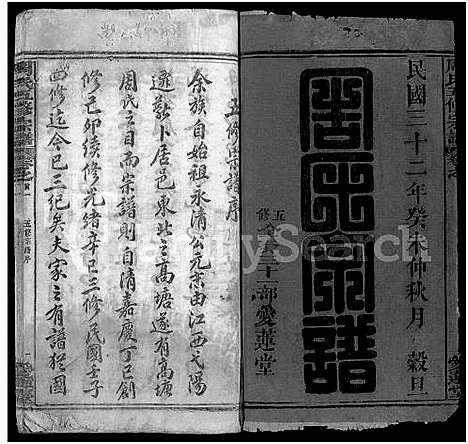 民國三十二年癸未仲秋月 穀旦
周氏宗譜
五修
三十二部愛蓮堂
五修宗譜序
余族自始祖永清公元宗由江西弋陽
遂卜居邑東北之高塘遂有高塘
周氏之目而宗譜則自清嘉慶丁巳創
修己卯續修光緒辛巳三修民國壬子
四修迄今已三紀矣夫家之有譜猶國
五修宗譜序
FamilySearch